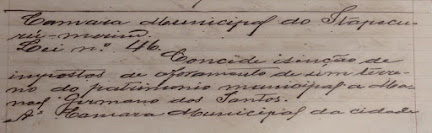 Camara Municipal do Itapecu-
rú-mirim.
Lei n.º 46.
Concide isenção de
impostos de aforamento de um terre-
no do patrimonio municipal a Ma-
noel Germano dos Santos.
A Camara Municipal da cidade